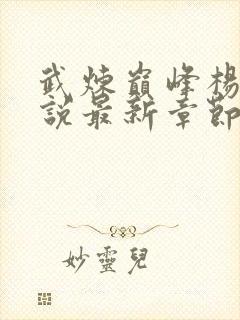 武煉巔峰楊
說最新章節
妙靈兒